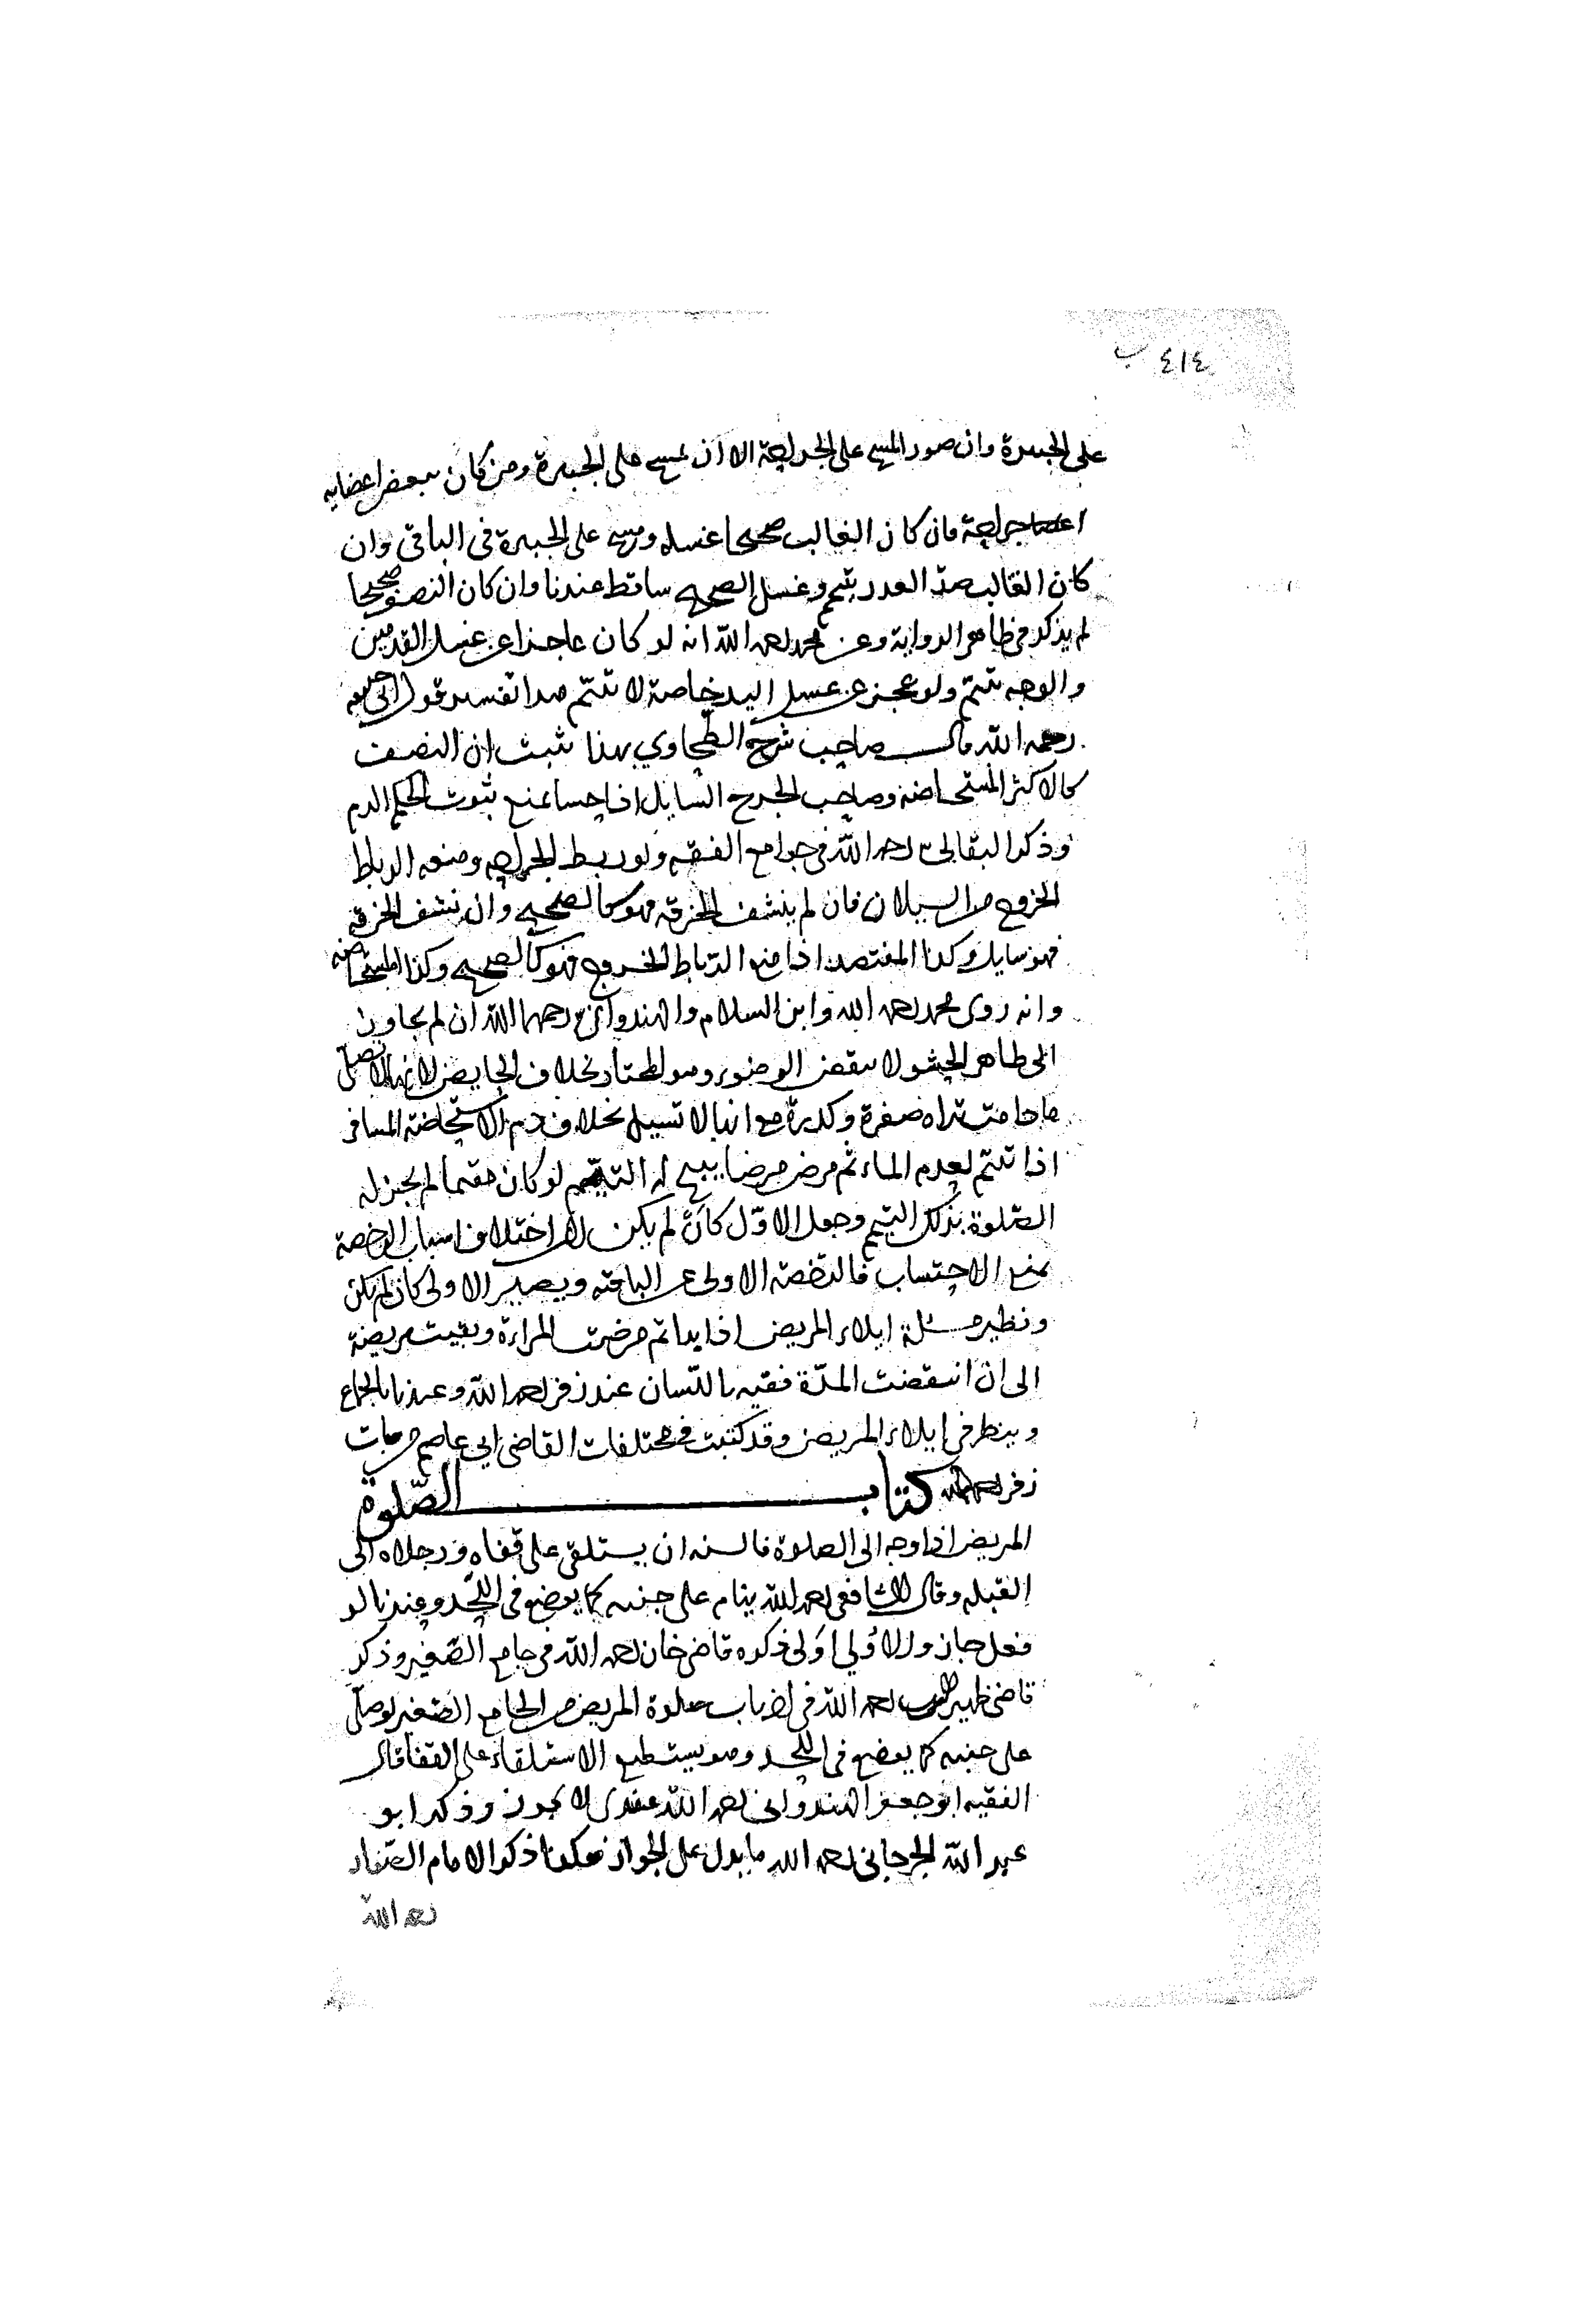 ٤١٤ ب
على الجبيرة وان صور المسح على الجراحة الا ان يمسح على الجبيرة ومن كان ببعض اعضايه
جراحة فان كان الغالب صحيحا غسله ومسح على الجبيرة في الباقي وان
كان الغالب يتيمم وغسل الصحيح ساقط عندنا وان كان النصف صحيحا
لم يذكر في ظاهر الرواية وعن محمد رحمه الله انه لو كان عاجزا عن غسل القدمين
والوجه تيمم ولو عجز عن غسل اليد خاصة لا تيمم هذا تفسير قول ابي حنيفه
رحمه الله قال صاحب شرح الطحاوي بهذا ثبت ان النصف
كالاكثر المستحاضه وصاحب الجرح السايل اذا يمنع ثبوت الحكم الدم
وذكر البقالي رحمه الله في جوامع الفقه ولو ربط الجراحه ومنعه الرباط
الخروج من السيلان فان لم ينشف الخرقه فهو كالصحيح وان نشف الخرقه
فهو سايل وكذا المفتصد اذا منع الرباط الخروج فهو كالصحيح وكذا المستحاضه
وانه روى محمد رحمه الله وابن السلام والهندواني رحمهما الله ان لم يجاوز
الى ظاهر الحشو لا ينقض الوضوء وهو المختار بخلاف الحايض لانها لا تصلي
ما دامت تراه صفرة وكدرة مع انها لا تسيل بخلاف دم الاستحاضة المسافر
اذا تيمم لعدم الماء ثم مرض مرضا يبيح له التيمم لو كان مقيما لم يجز له
الصلوة بذلك التيمم وجعل الاول كأن لم يكن لان اختلاف اسباب الرخصة
يمنع الاحتساب فالرخصة الاولى عن الباقيه ويصير الاولى كان لم يكن
ونظير مسئلة ايلاء المريض اذا بدا ثم مرضت المراءة وبقيت مريضة
الى ان انقضت المدّة ففيه باللسان عند زفر رحمه الله وعندنا بالجماع
وينظر في ايلاء المريض وقد كتبت في مختلفات القاضي ابي عاصم
زفر رحمه الله كتاب الصّلوة
المريض اذا وجه الى الصلوة فالسنه ان يستلقى على قفاه ورجلاه الى
القبله وقال الشافعي رحمه الله ينام على جنبه كما يوضع في اللحد وعندنا لو
فعل جاز والاولى اولى ذكره قاضي خان رحمه الله في جامع الصغير وذكر
قاضي ظهير رحمه الله في باب صلوة المريض من الجامع الصغير لو صلى
على جنبه كما يوضع في اللحد وهو يستطيع الاستلقاء على القفا قال
الفقيه ابو جعفر الهندواني رحمه الله عندى لا يجوز وذكر ابو
عبد الله الجرجاني رحمه الله ما يدل على الجواز هكذا ذكر الامام الصفار
رحمه الله